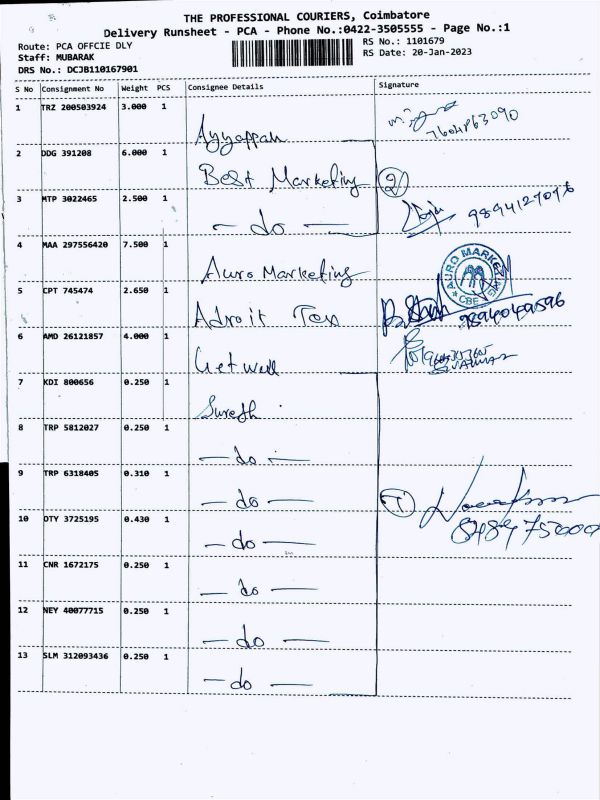 THE PROFESSIONAL COURIERS, Coimbatore
Delivery Runsheet - PCA - Phone No.:0422-3505555 - Page No.:1
Route: PCA OFFCIE DLY
RS No.: 1101679
Staff: MUBARAK
RS Date: 20-Jan-2023
DRS No.: DCJB110167901
S No Consignment No Weight PCS Consignee Details Signature
1 TRZ 200503924 3.000 1 Ayyappan 7604863090
2 DDG 391208 6.000 1 Best Marketing (2)
3 MTP 3022465 2.500 1 - do -
4 MAA 297556420 7.500 1 Auro Marketing AURO MARKETING CBE
5 CPT 745474 2.650 1 Adroit Tex 9894049596
6 AMD 26121857 4.000 1 Getwell
7 KDI 800656 0.250 1 Suresh
8 TRP 5812027 0.250 1 - do -
9 TRP 6318405 0.310 1 - do - (7)
10 OTY 3725195 0.430 1 - do -
11 CNR 1672175 0.250 1 - do -
12 NEY 40077715 0.250 1 - do -
13 SLM 312093436 0.250 1 - do -